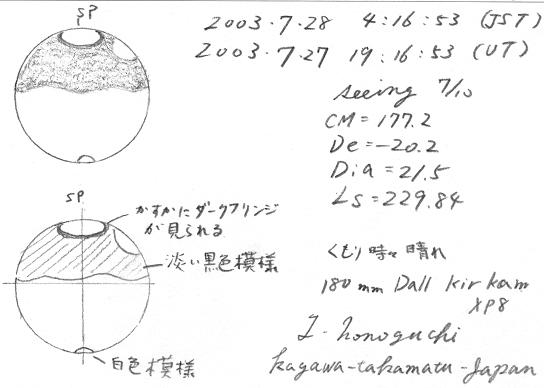 SP
2003・7・28 4:16:53 (JST)
2003・7・27 19:16:53 (UT)
seeing 7/10
CM=177.2
De=-20.2
Dia=21.5
Ls=229.84
SP
かすかにダークフリンジ
が見られる
淡い黒色模様
白色模様
くもり時々晴れ
180mm Dall Kirkam
XP8
I-honoguchi
kagawa-takamatu-Japan